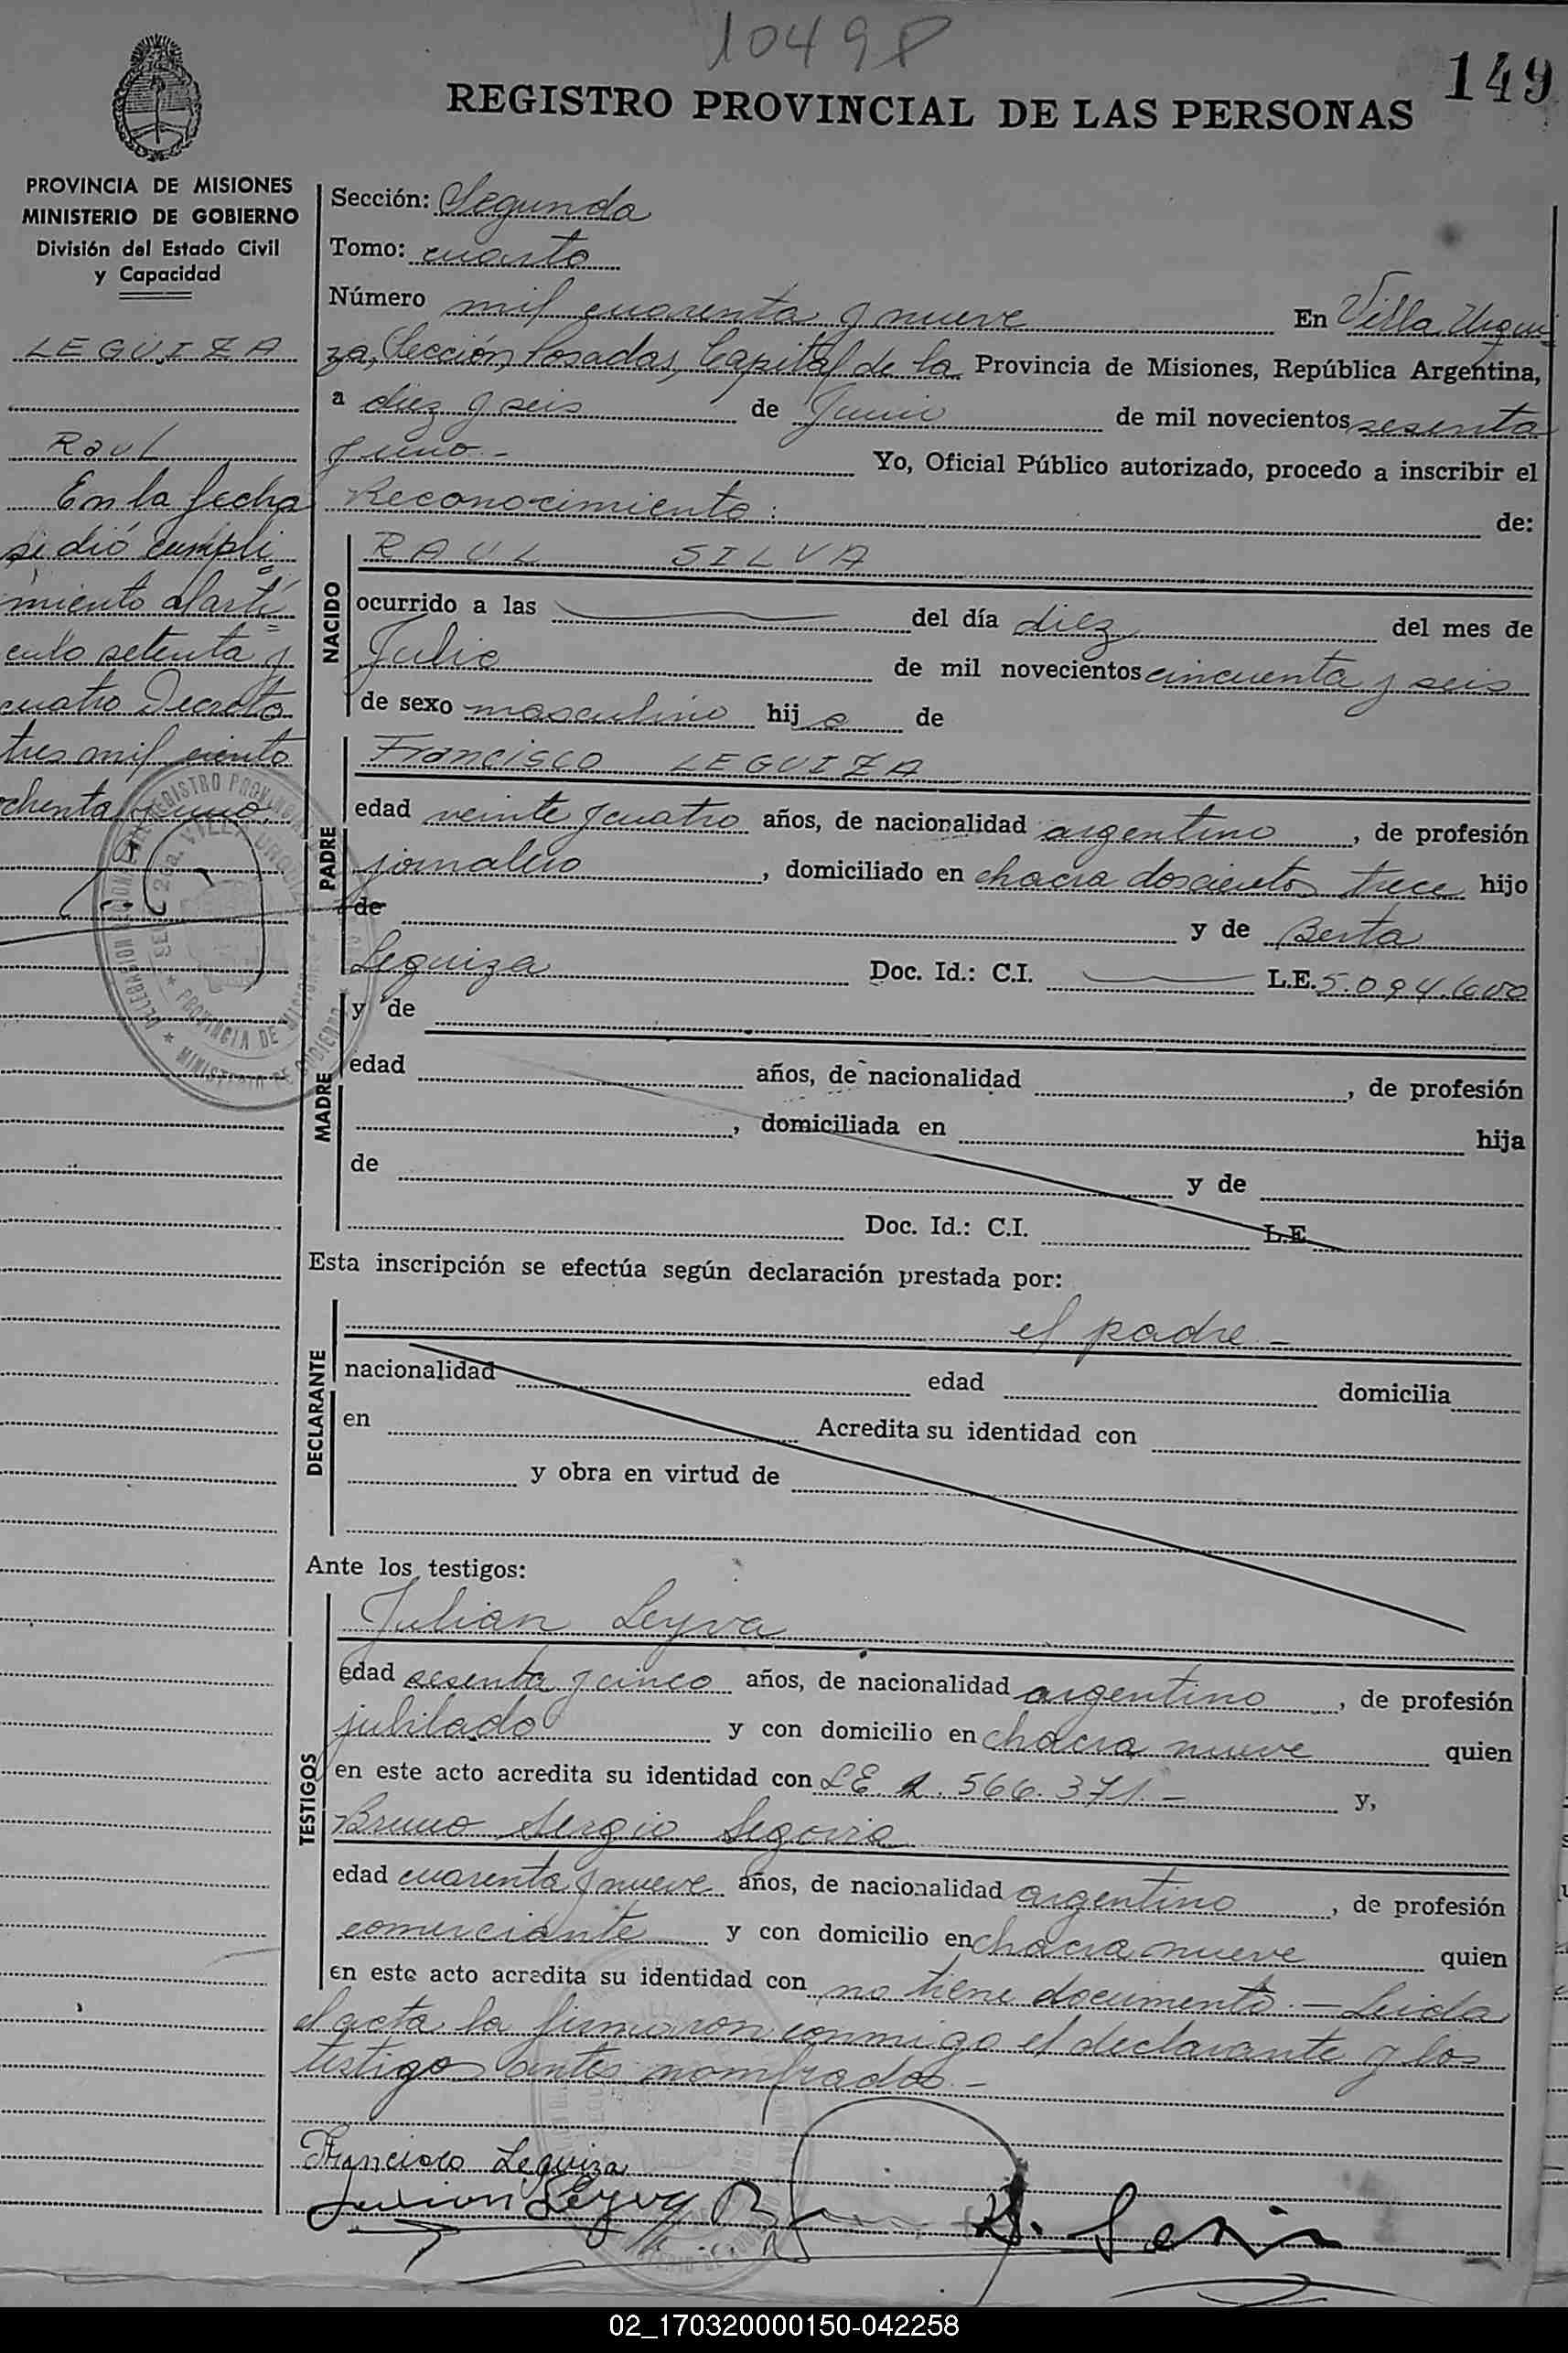 10498
149
REGISTRO PROVINCIAL DE LAS PERSONAS
PROVINCIA DE MISIONES
MINISTERIO DE GOBIERNO
División del Estado Civil
y Capacidad
LEGUIZA
Raul
En la fecha
se dió cumpli
miento al artí
culo setenta y
cuatro Decreto
tres mil ciento
ochenta y uno.
Sección: Segunda
Tomo: cuarto
Número mil cuarenta y nueve En Villa Urqui
za, Sección, Posadas, Capital de la Provincia de Misiones, República Argentina,
a diez y seis de Junio de mil novecientos sesenta
y uno.- Yo, Oficial Público autorizado, procedo a inscribir el
Reconocimiento: de:
NACIDO
RAUL SILVA
ocurrido a las del día diez del mes de
Julio de mil novecientos cincuenta y seis
de sexo masculino hijo de
PADRE
Francisco LEGUIZA
edad veinte y cuatro años, de nacionalidad argentino, de profesión
jornalero, domiciliado en chacra doscientos trece hijo
de y de Berta
Leguiza Doc. Id.: C.I. L.E. 5.094.600
MADRE
y de
edad años, de nacionalidad , de profesión
, domiciliada en hija
de y de
Doc. Id.: C.I. L.E.
Esta inscripción se efectúa según declaración prestada por:
DECLARANTE
el padre -
nacionalidad edad domicilia
en Acredita su identidad con
y obra en virtud de
Ante los testigos:
TESTIGOS
Julian Leyva
edad sesenta y cinco años, de nacionalidad argentino, de profesión
jubilado y con domicilio en chacra nueve quien
en este acto acredita su identidad con L.E. 566.371.- y,
Bruno Sergio Segovia
edad cuarenta y nueve años, de nacionalidad argentino, de profesión
comerciante y con domicilio en chacra nueve quien
en este acto acredita su identidad con no tiene documento.- Leida
el acta la firmaron conmigo el declarante y los
testigos antes nombrados.-
Francisco Leguiza
Julian Leyva
02_170320000150-042258